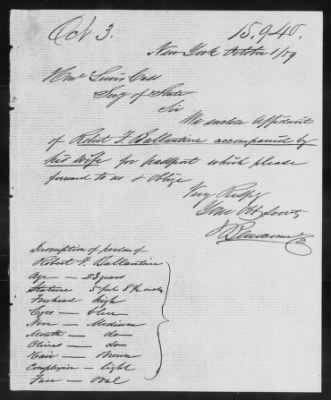 Oct 3.
15,940.
New York October 1/59
Hon. Lewis Cass
Secy of State
Sir
We enclose Affidavit
of Robert F. Ballantine accompanied by
his wife for passport which please
forward to us & oblige
Very Respy
Your Obt Servts
Description of person of
Robert F. Ballantine
Age — 23 years
Stature 5 feet 8 ½ inches
Forehead high
Eyes — blue
Nose — Medium
Mouth — do
Chin — do
Hair — Brown
Complexion — light
Face — Oval